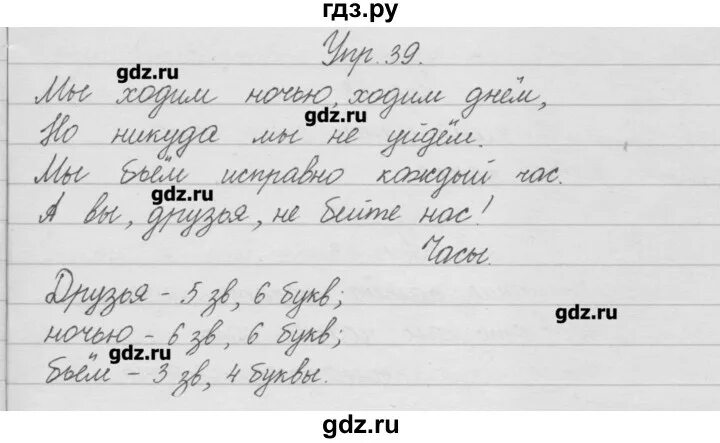 гдз.ру
Упр. 39.
gdz.ru
Мы ходим ночью, ходим днём,
gdz.ru
Но никуда мы не уйдём.
Мы бьём исправно каждый час.
gdz.ru
А вы, друзья, не бейте нас!
Часы.
Друзья - 5 зв, 6 букв;
gdz.ru
ночью - 6 зв, 6 букв;
gdz.ru
бьём - 3 зв, 4 буквы.
gdz.ru